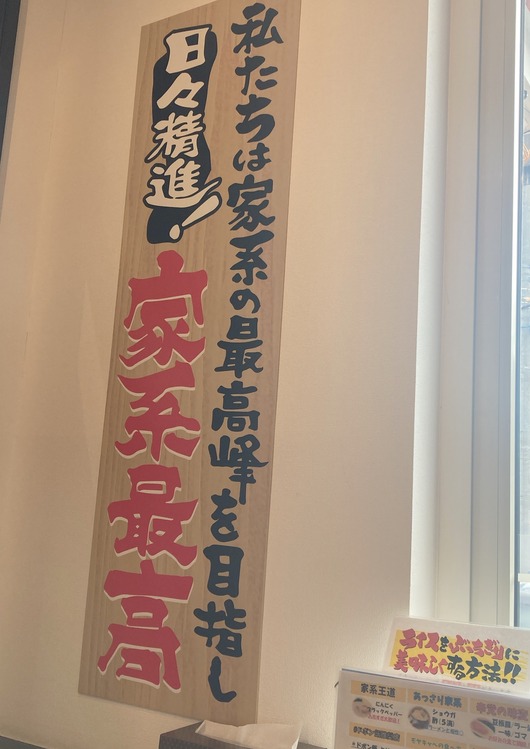 私たちは家系の最高峰を目指し
日々精進!
家系最高
ライスをぶっちぎりに
美味しくする方法!!
家系王道
にんにく
ブラックペッパー
あっさり家系
ショウガ
酢(5滴)